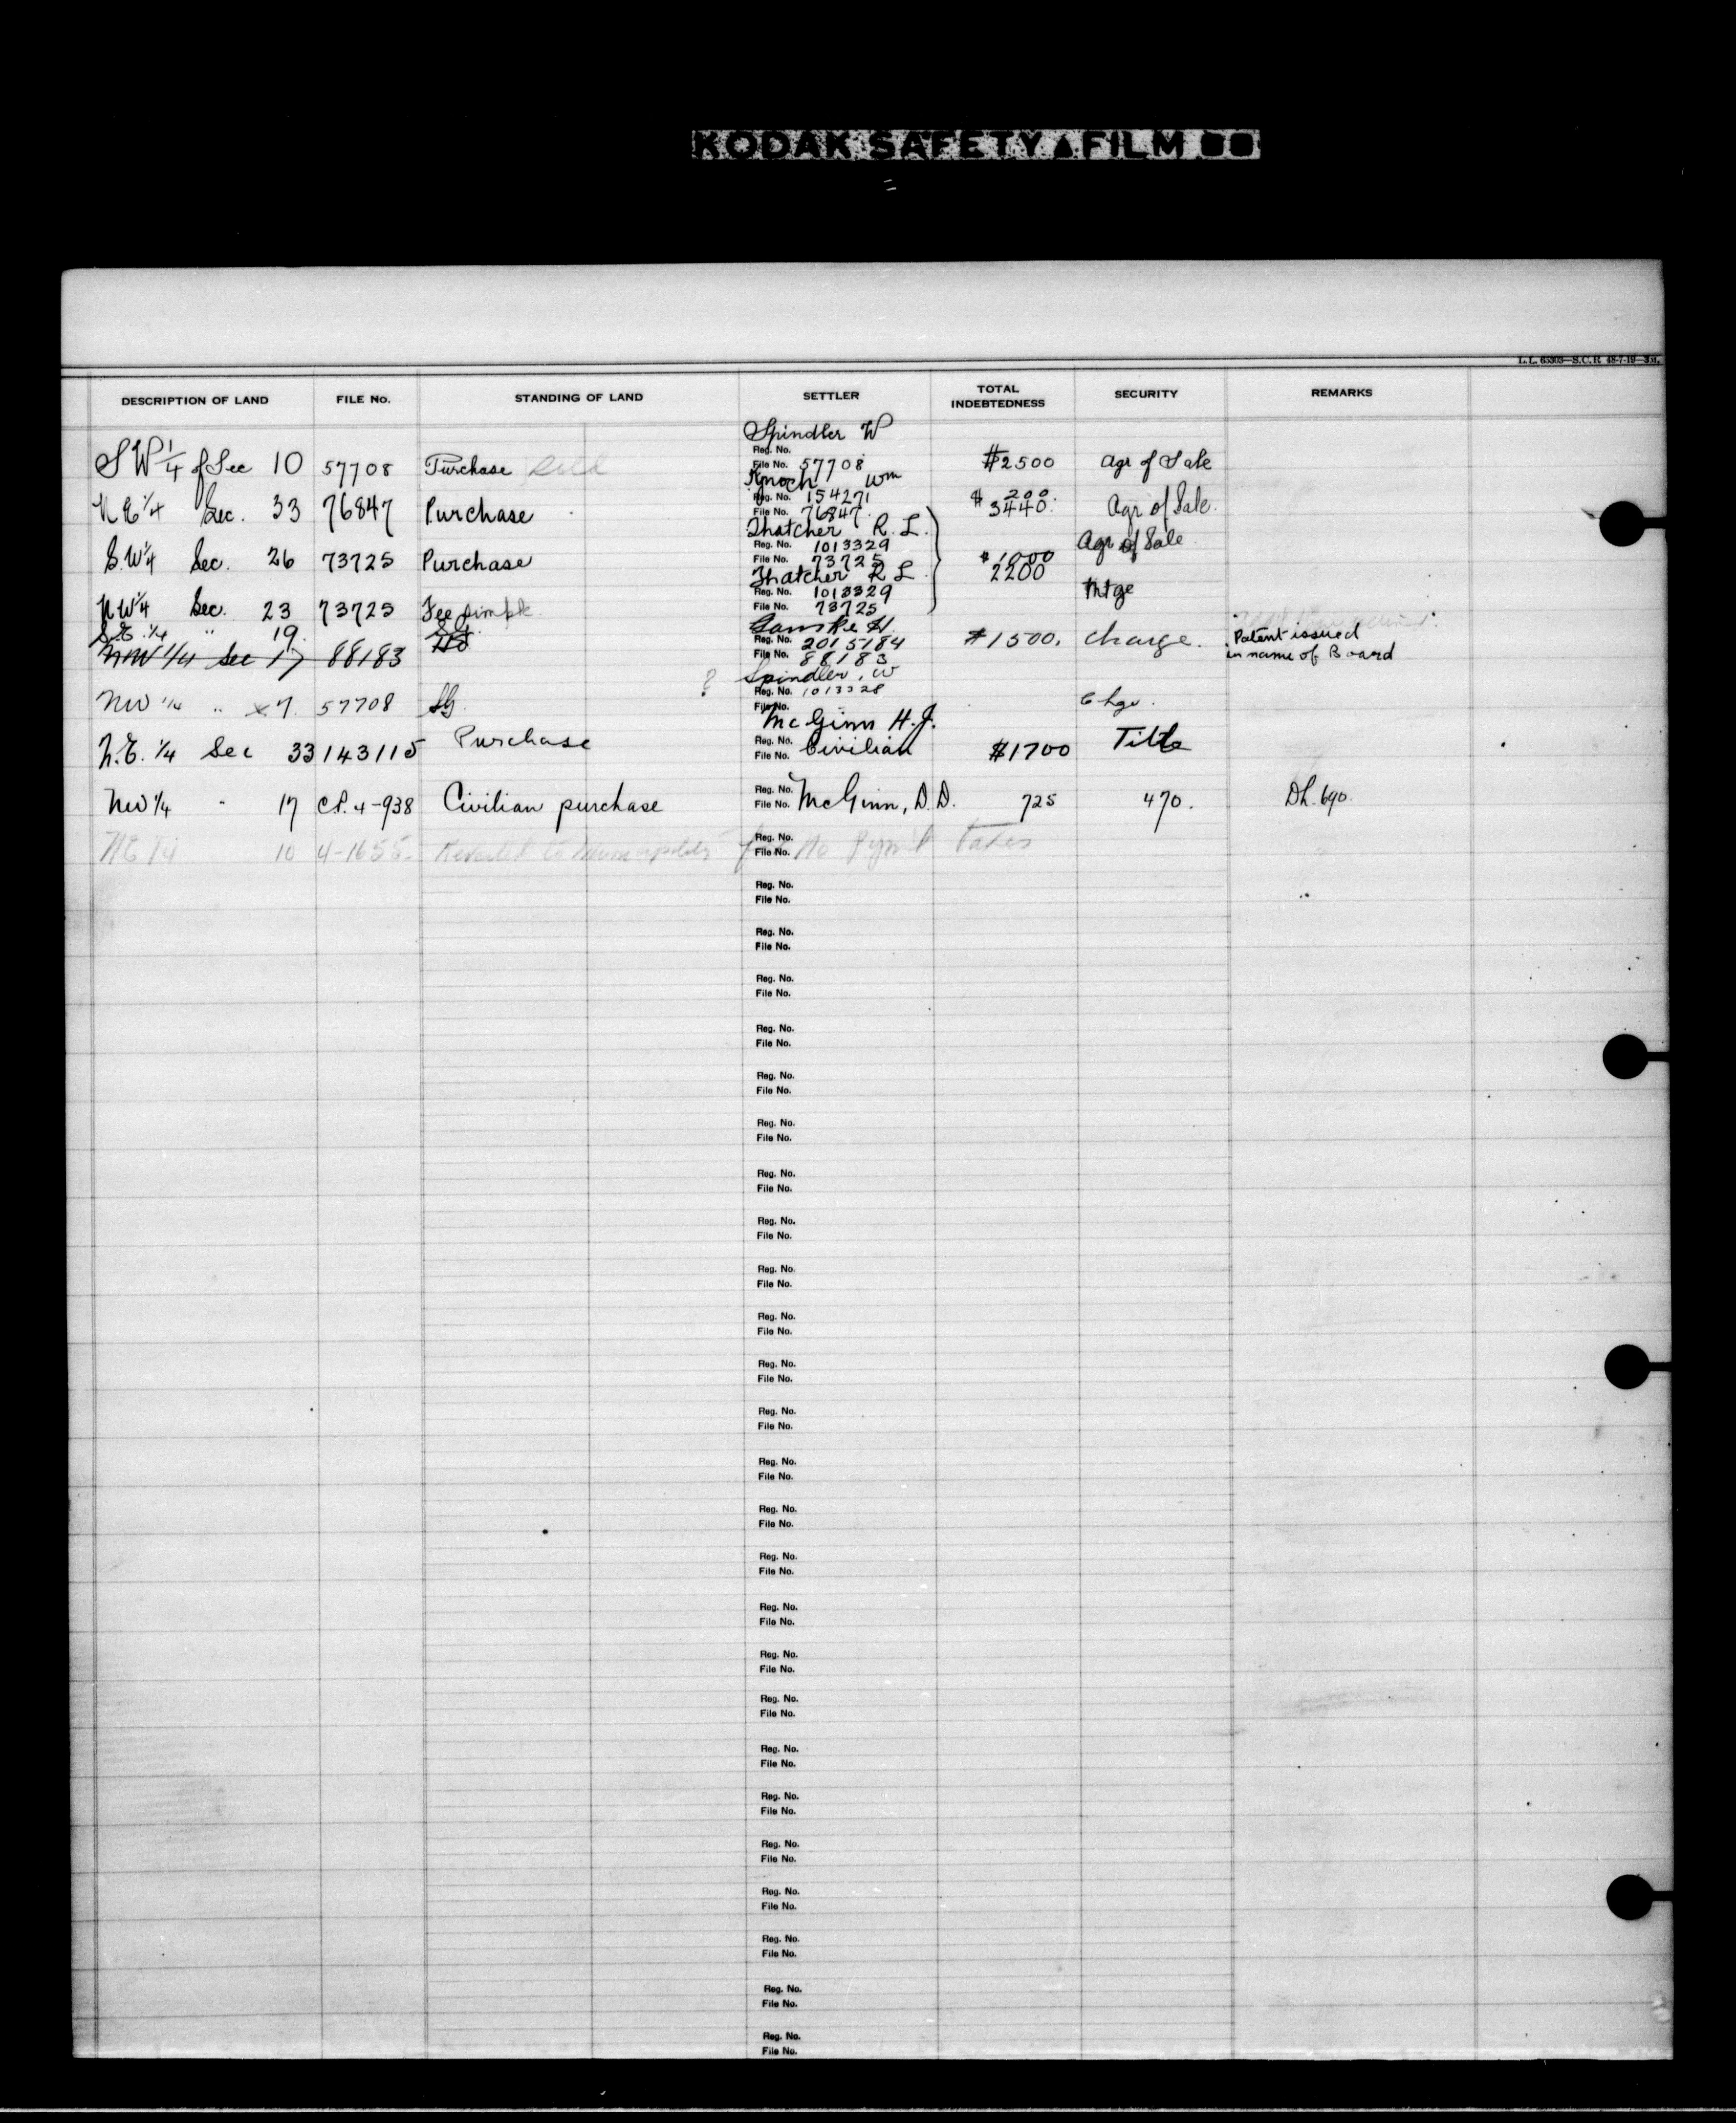 KODAK SAFETY FILM
L.L. 65303—S.C.R. 48-7-19—3M.
DESCRIPTION OF LAND FILE No. STANDING OF LAND SETTLER TOTAL INDEBTEDNESS SECURITY REMARKS
Spindler W
Reg. No.
SW 1/4 of Sec 10 57708 Purchase Sold File No. 57708 $2500 Agr of Sale
Knoch Wm
Reg. No. 154271 $ 200
N E 1/4 Sec. 33 76847 Purchase File No. 76847 3440. Agr of Sale.
Thatcher R. L.
Reg. No. 1013329 Agr of Sale
S.W 1/4 Sec. 26 73725 Purchase File No. 73725 $1000
Thatcher R L 2200
Reg. No. 1013329 Mtge
N W 1/4 Sec. 23 73725 Fee simple File No. 73725
S.E. 1/4 " 19.
Reg. No. 2015184 $1500. Charge. Patent issued
NW 1/4 Sec 17 88183 File No. 88183 in name of Board
? Spindler, W
NW 1/4 " 7. 57708 SG. Reg. No. 1013328 Chge.
File No.
McGinn H.J.
N.E. 1/4 Sec 33 143115 Purchase Reg. No. Civilian $1700 Title
File No.
NW 1/4 " 17 C.P. 4-938 Civilian purchase Reg. No. McGinn, D.D. 725 470. DL. 690.
File No.
NE 1/4 10 4-1655. Reverted to Municipality for No Pym't Taxes
Reg. No.
File No.
Reg. No.
File No.
Reg. No.
File No.
Reg. No.
File No.
Reg. No.
File No.
Reg. No.
File No.
Reg. No.
File No.
Reg. No.
File No.
Reg. No.
File No.
Reg. No.
File No.
Reg. No.
File No.
Reg. No.
File No.
Reg. No.
File No.
Reg. No.
File No.
Reg. No.
File No.
Reg. No.
File No.
Reg. No.
File No.
Reg. No.
File No.
Reg. No.
File No.
Reg. No.
File No.
Reg. No.
File No.
Reg. No.
File No.
Reg. No.
File No.
Reg. No.
File No.
Reg. No.
File No.
Reg. No.
File No.